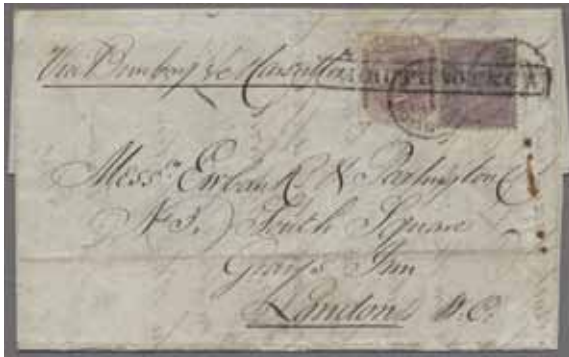 Via Bombay & Marseilles
Messrs Ewbank & Partington
No 3. South Square
Grays Inn
London W.C.